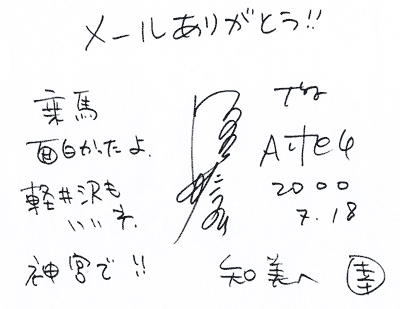 メールありがとう!!
乗馬
面白かったよ.
軽井沢も
いいネ.
神宮で!!
The
Alfee
2000
7.18
知美へ 幸